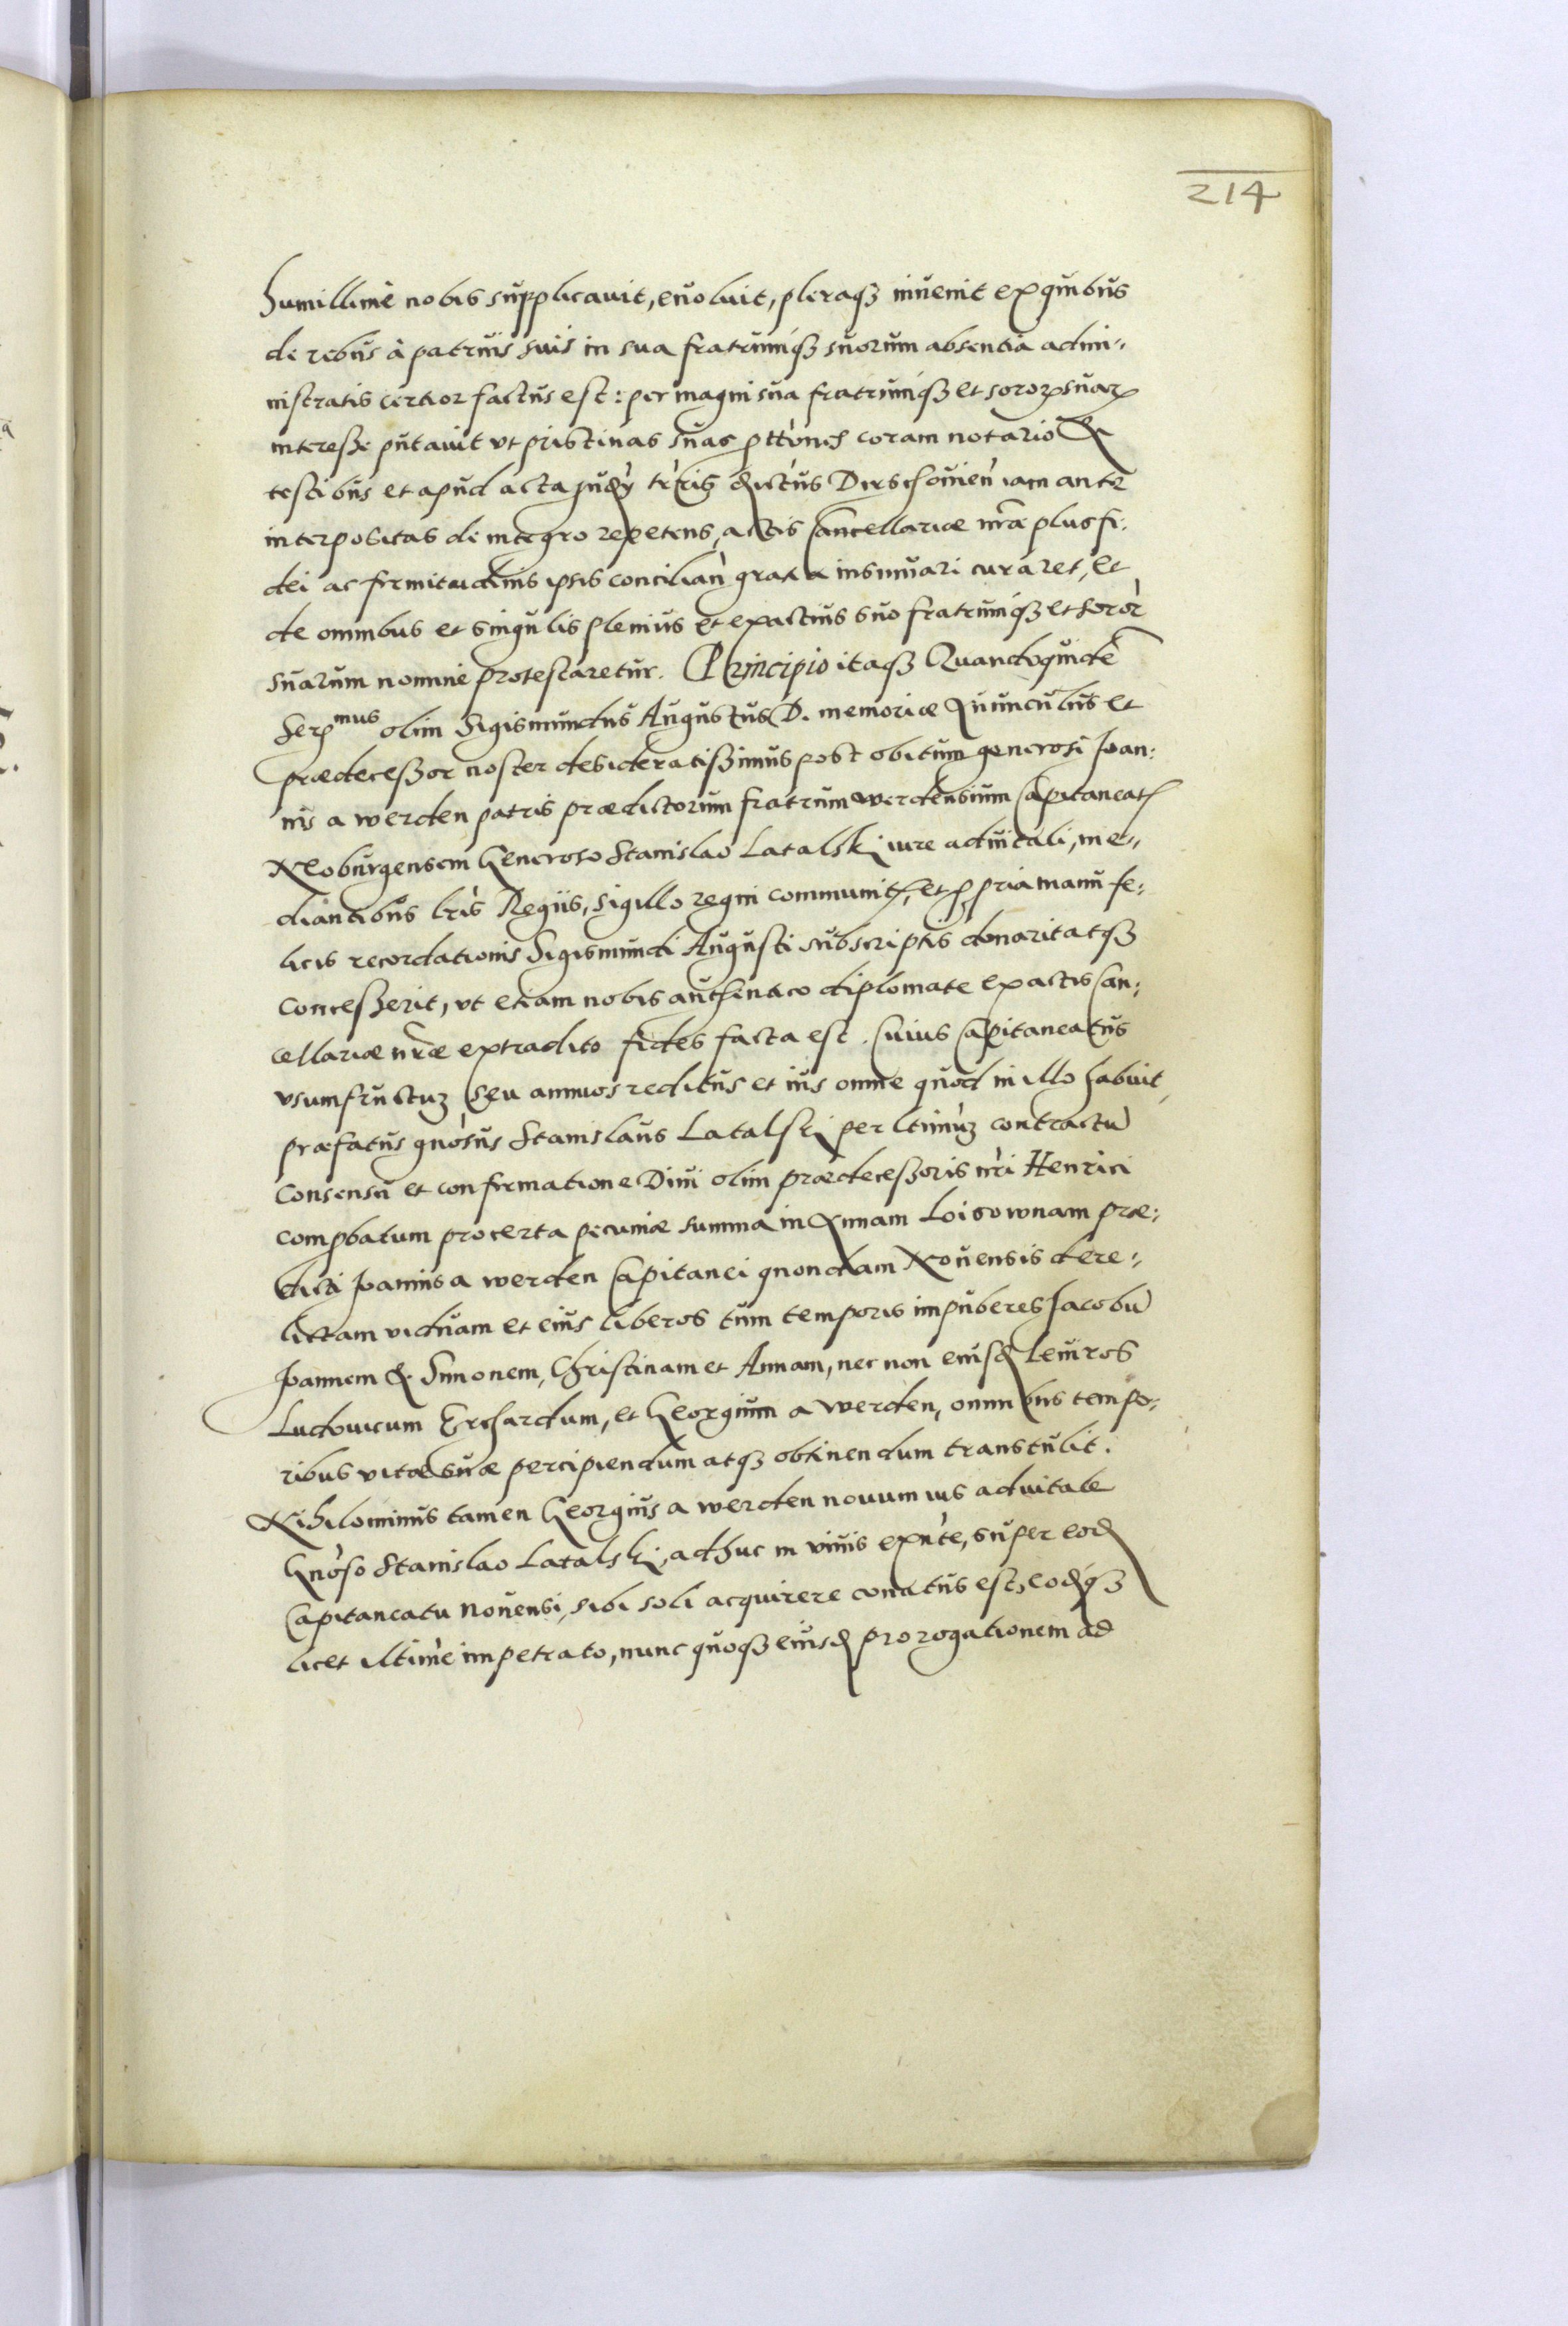 214
humillimè nobis supplicauit, euoluit, pleraqꝫ inuenit ex quibus
de rebus à patruis suis in sua fratrumqꝫ suorum absentia admi„
nistratis certior factus est: per magni sua fratrumqꝫ et soroꝝ suaꝝ
interesse putauit vt pristinas suas ꝓttônes coram notario &
testibus et apud acta Judÿ trris dictus Dirschouien iam ante
interpositas de integro repetens, actis Cancellariæ nrãe plus fi:
dei ac firmitudinis ipsis conciliãn gratia insinuari curaret, et
de omnibus et singulis plenius et exactius suo fratrumqꝫ et soror
suarum nomine protestaretur. Principio itaqꝫ Quandoquidẽ
Serꝰmus olim Sigismundus Augustus D. memoriæ Auunculus et
prædecessor noster desideratissimus post obitum generosi Joan:
nis a werden patris prædictorum fratrum werdensium Capitaneatꝫ
Neoburgensem Generoso Stanislao Latalskj iure aduitali, me„
diantibus lrìs Regiis, sigillo regni communitꝫ, et ꝓpria manu fe:
licis recordationis Sigismundi Augusti subscriptis donarit atqꝫ
concesserit, vt etiam nobis authentico diplomate ex actis Can:
cellariæ nrãe extradito fides facta est. Cuius Capitaneatus
vsumfructuꝫ seu annuos reditus et ius omne quod in illo habuit,
præfatus gnòsus Stanislaus Latalskj per ltimùꝫ contractũ
consensu et confirmatione Diui olim prædecessoris nri Henrici
comꝓbatum pro certa pecuniæ summa in Annam Loisownam præ:
dicti Joannis a werden Capitanei quondam Nouensis dere„
lictam viduam et eius liberos tum temporis impuberes Jacobũ
Joannem & Simonem, Christinam et Annam, nec non eiusđ leuiros
Ludouicum Erhardum, et Georgium a werden, omnibus tempo:
ribus vitæ suæ percipiendum atqꝫ obtinendum transtulit.
Nihilominus tamen Georgius a werden nouum ius aduitale
Gnòso Stanislao Latalskj, adhuc in viuis exnt̀e, super eođ
Capitaneatu Nouensi, sibi soli acquirere conatus est, eođqꝫ
licet iltimè impetrato, nunc quoqꝫ eiusđ prorogationem ad